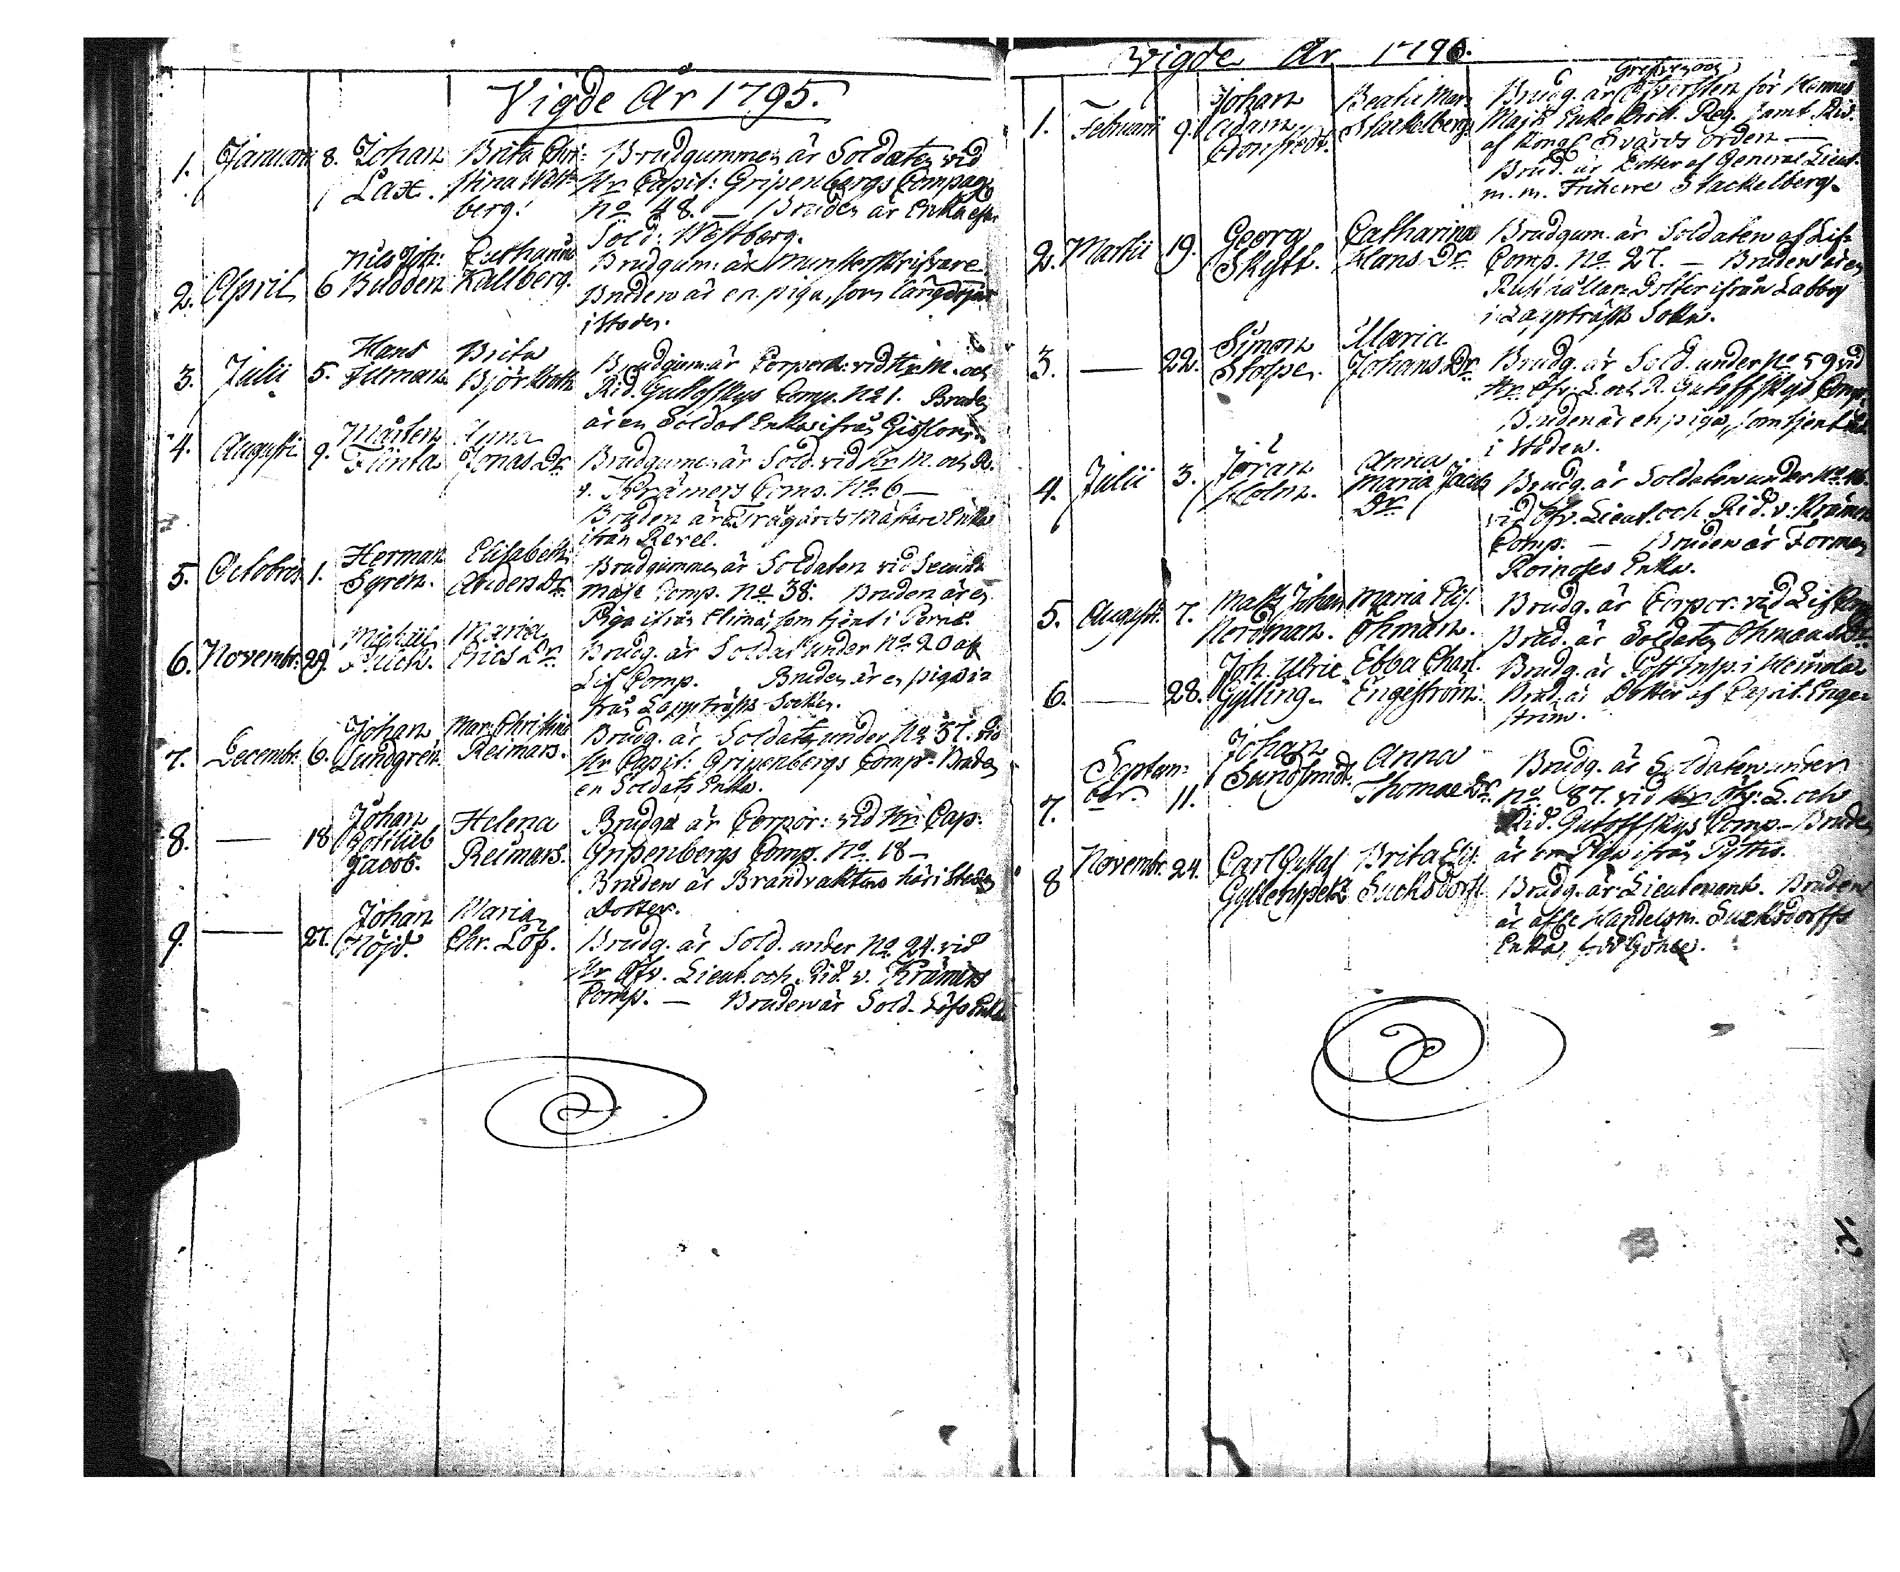 Vigde År 1795.
1. Januarii 8. Johan Brita Chri: Brudgummen är Soldaten vid
Lax. stina West= Hr Capit: Gripenbergs Compag.
berg. No 48. — Bruden är Enka efter
Sold: Westberg.
2. April 6 Nils Joh: Catharina Brudgum: är Munsterskrifvare
Budden Kallberg. Bruden är en piga, som länge tjent
i Staden.
3. Julii 5. Hans Brita Brudgum: är Corporal vid Hr M. och
Björkroth Rid. Gutoffskys Comp. No 1. Bruden
är en Soldat Enka ifrån
4. Augusti 9. Mårten Anna Brudgumen är Sold. vid Hr M. och R.
Flinta Jonas Dr v. Krämers Comp. No 6 —
Bruden är Trägårds Mästare Enka
ifrån Revel.
5. Octobris 1. Herman Elisabeth Brudgummen är Soldaten vid Secund
Sgren. Anders Dr Maj: Comp. No 38. Bruden är en
Piga ifrån Elimä, som tjent i Perno.
6. Novembr. 29. Michael Maria Brudg. är Soldat under No 20 af
Erics Dr Lif Comp. Bruden är en piga i=
från Lappträsk Socken.
7. Decembr. 6. Johan Mar: Christina Brudg. är Soldaten under No 57. vid
Lundgren. Reimars. Hr Capit: Gripenbergs Comp. Bruden
en Soldats Enka.
8. — 18 Johan Helena Brudg. är Corpor: vid Hr Cap.
Gottlieb Reimars. Gripenbergs Comp. No 18 —
Jacob. Bruden är Brandvaktens här i Staden
Dotter.
9. — 27. Johan Maria Brudg. är Sold. under No 94. vid
Höjd. Chr. Löf. Hr Öfv. Lieut. och Rid. v. Krämers
Comp. — Bruden är Sold. Löfs Enka
Vigde År 1796.
1. Februarii 9. Johan Beata Mar: Brudg. är Grefven och Öfversten för Kennes
Adam Stackelberg Majts Enke Drot. Reg. samt Rid.
Cronstedt. af Kongl Svärds Orden —
Brud. är Dotter af General Lieut.
m. m. Friherre Stackelberg.
2. Martii 19. Georg Catharina Brudgum. är Soldaten af Lif=
Skytt. Hans Dr Comp. No 27. — Bruden är en
Dotter ifrån Labby
i Lappträsk Sokn.
3. — 22. Simon Maria Brudg. är Sold. under No 59 vid
Stolpe. Johans Dr Hr Öfv. L. och R. Gutoffskys Comp.
Bruden är en piga, som tjent
i Staden.
4. Julii 3. Jöran Anna Brudg. är Soldaten under No 46.
Holm. Maria Jacobs vid Öfv. Lieut. och Rid. v. Krämers
Dr Comp. — Bruden är
Roinoses Enka.
5. Augusti. 7. Matts Johan Maria Elis. Brudg. är Corpor. vid Lif Comp.
Nordman. Öhman. Brud. är Soldaten Öhmans Dr
6. — 28. Joh. Ulric Ebba Charl. Brudg. är Post Insp. i Heinola
Gylling. Engeström. Brud. är Dotter af Capit. Enge=
ström.
7. Septem= 11. Johan Anna Brudg. är Soldaten under
ber. Sandsundt. Thomae Dr No 87. vid Hr Öfv. L. och
Rid. Gutoffskys Comp. Bruden
är en Piga ifrån Pyttis.
8 Novembr. 24. Carl Gustaf Brita Elis. Brudg. är Lieutenant. Bruden
Sucksdorff är afl. Handelsm. Sucksdorffs
Enka,